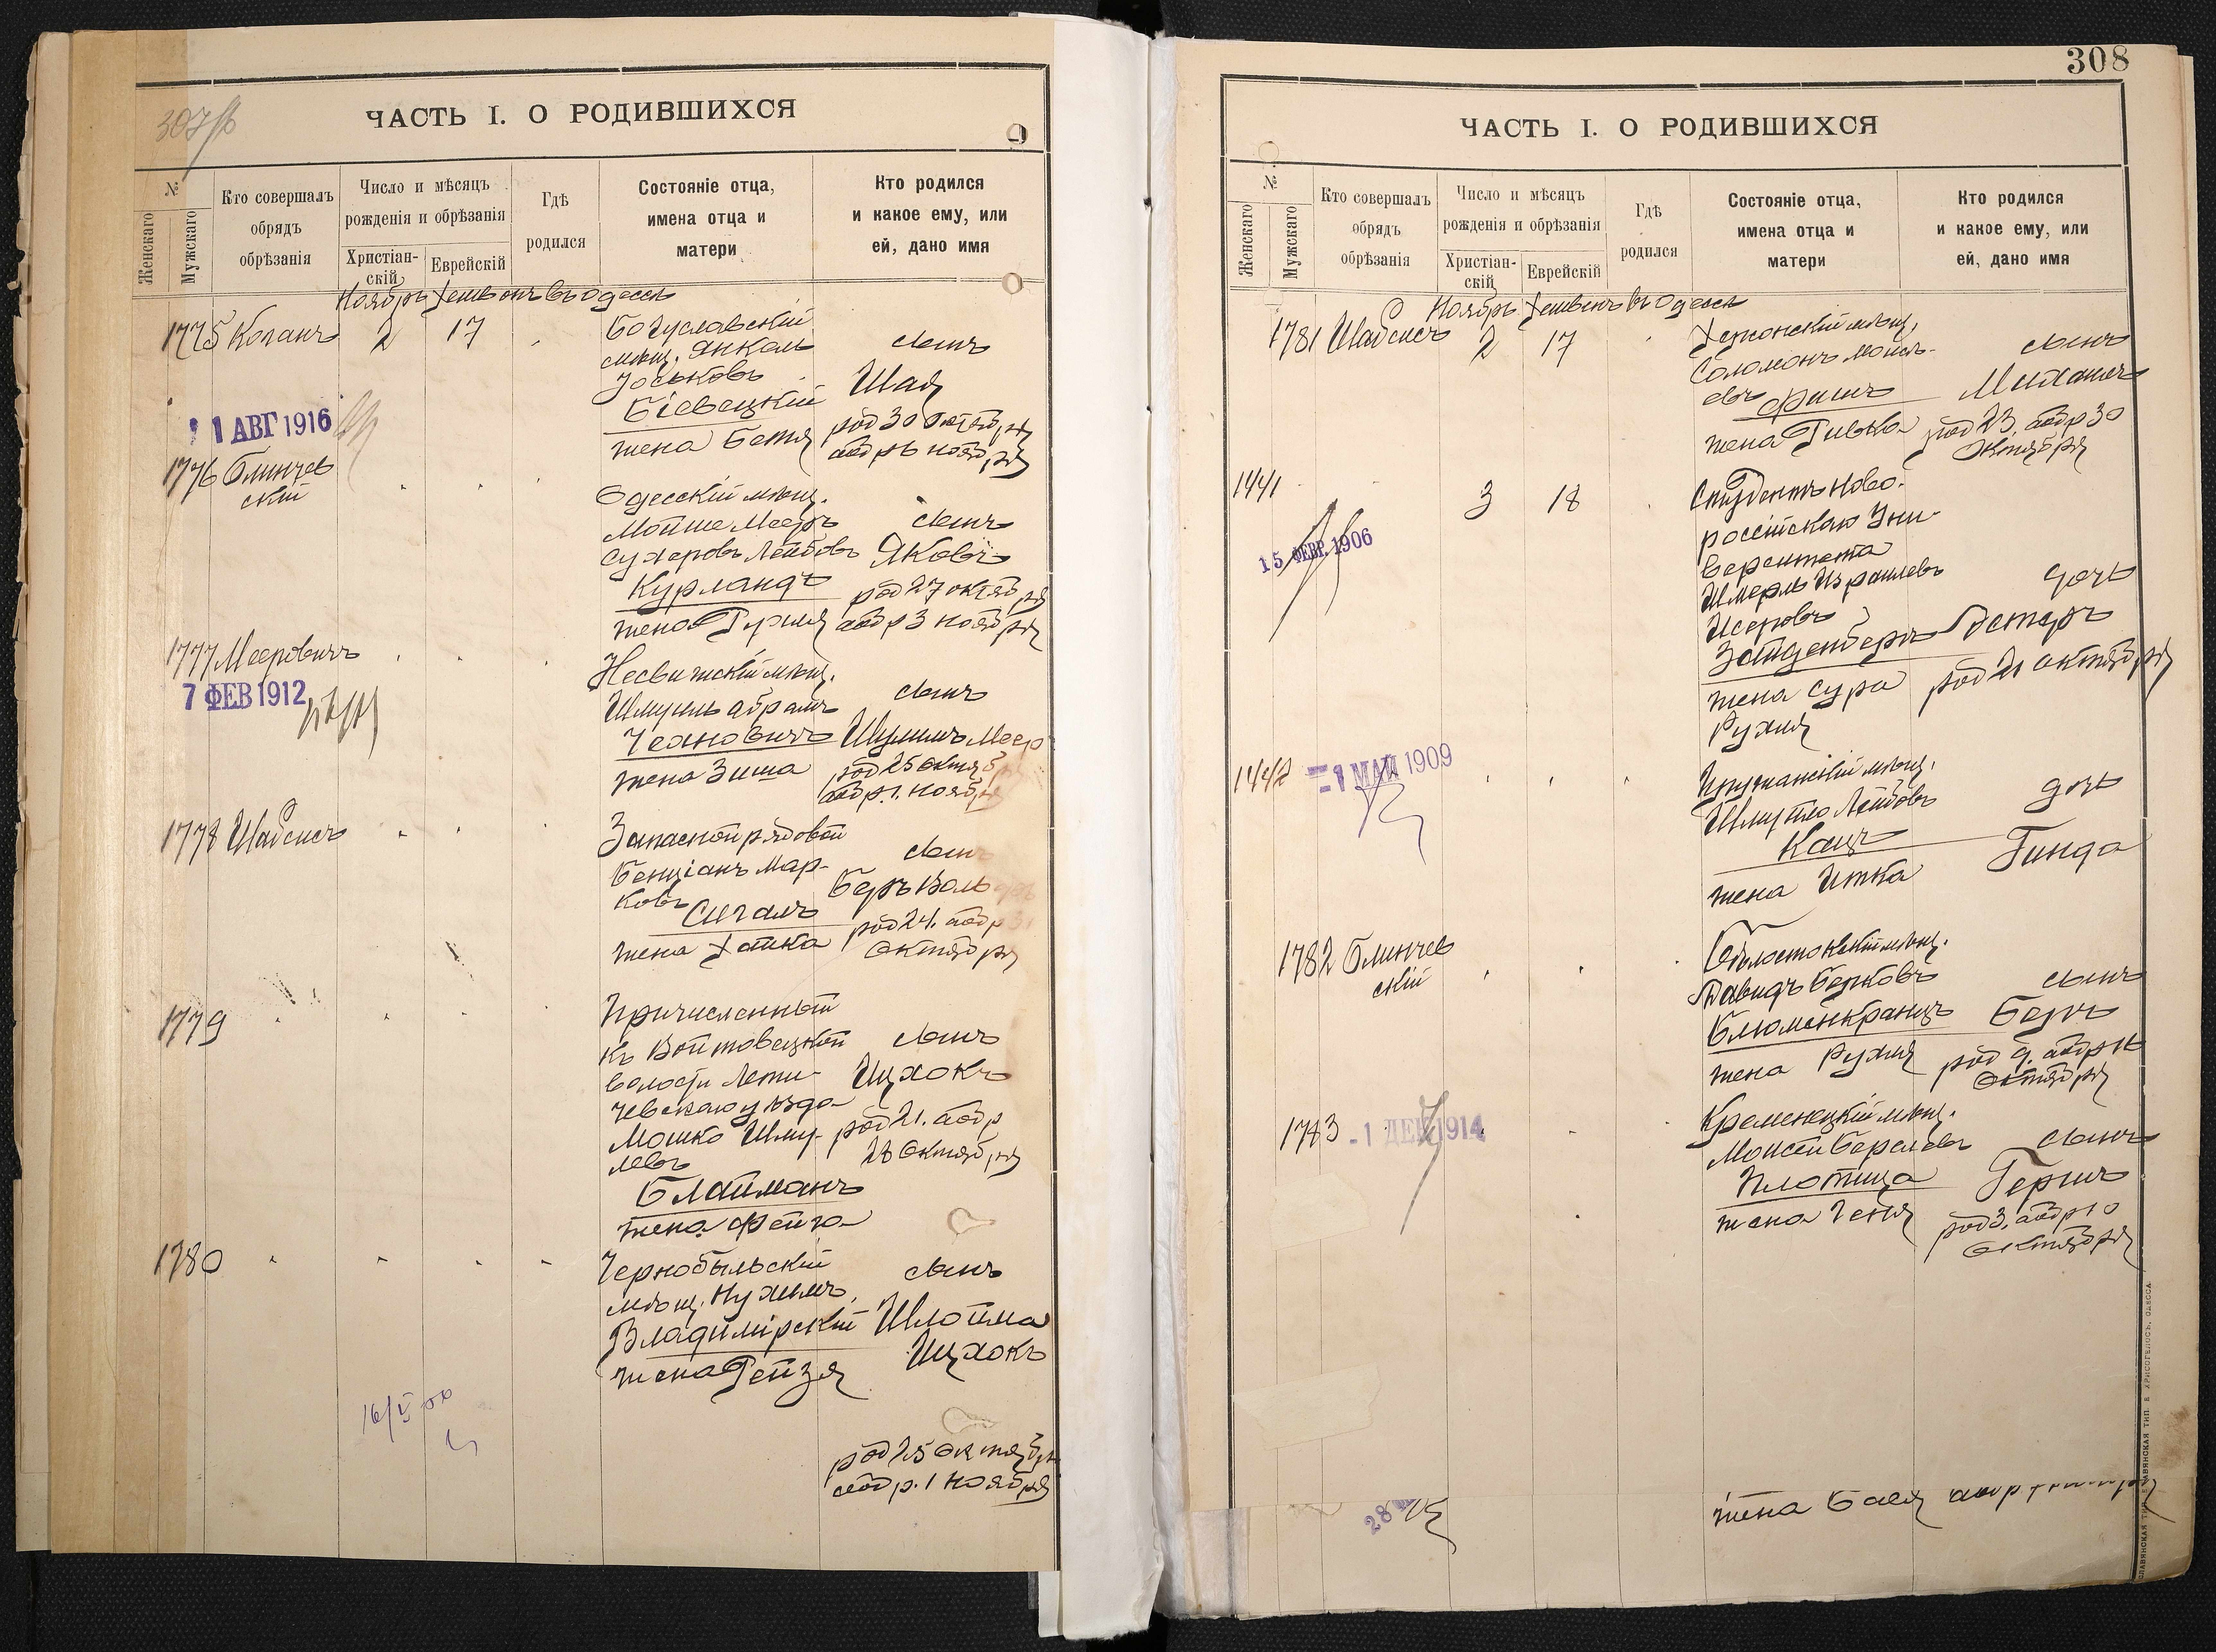 307 об
ЧАСТЬ I. О РОДИВШИХСЯ
№
Женскаго
Мужскаго
Кто совершалъ
обрядъ
обрѣзанія
Число и мѣсяцъ
рожденія и обрѣзанія
Христіан-
скій
Еврейскій
Гдѣ
родился
Состояніе отца,
имена отца и
матери
Кто родился
и какое ему, или
ей, дано имя
Ноябрь Хешвонъ въ Одессѣ
1775 Коганъ 2 17
Богуславскій
мѣщ. Янкель
Іоськовъ
Біевецкій
жена Бетя
сынъ
Шая
род 30 Октября
обр 6 ноября
11 АВГ 1916
1776 Блинчев
скій
Одесскій мѣщ.
Мойше Мееръ
Сухеровъ Лейбовъ
Курландъ
жена Рухля
сынъ
Яковъ
род 27 октября
обр 3 ноября
1777 Мееровичъ
7 ФЕВ 1912
Несвижскій мѣщ.
Шмуиль Абрамъ
Чеановичъ
жена Зиша
сынъ
Шулимъ Меер
род 25 Октяб
обр. 1. Нояб
1778 Шабсисъ
Запасной рядовой
Бенціанъ Мар-
ковъ
Сигалъ
жена Хайка
сынъ
Беръ Воль
род 24. обр
октября
1779
Причисленный
къ Войтовецкой
волости Лети-
чевскаго уѣзда
Мошко Шму-
левъ
Блайманъ
жена Фейга
сынъ
Ицхокъ
род 21. обр
28 Октября
1780
Чернобыльскій
мѣщ. Нухимъ
Владимірскій
жена Рейзя
сынъ
Шлойма
Ицхокъ
род 25 Октября
обр. 1 Ноября
308
ЧАСТЬ I. О РОДИВШИХСЯ
№
Женскаго
Мужскаго
Кто совершалъ
обрядъ
обрѣзанія
Число и мѣсяцъ
рожденія и обрѣзанія
Христіан-
скій
Еврейскій
Гдѣ
родился
Состояніе отца,
имена отца и
матери
Кто родился
и какое ему, или
ей, дано имя
Ноябрь Хешвонъ въ Одессѣ
1781 Шабсисъ 2 17
Херсонскій мѣщ.
Соломонъ Моисе-
евъ Фишъ
жена Ривка
сынъ
Михаилъ
род 23. обр 30
Октября
1441 3 18
15 ФЕВР. 1906
Студентъ Ново-
россійскаго Уни-
верситета
Шмерль Израилевъ
Исеровъ
Зайденбергъ
жена Сура
Рухля
дочь
Эстеръ
род 21 октября
1442
-1 МАЙ 1909
Пружанскій мѣщ.
Шмуйло Лейбовъ
Кацъ
жена Итка
дочь
Гинда
1782 Блинчев
скій
Бѣлостокскій мѣщ.
Давидъ Берковъ
Блюменкранцъ
жена Рухля
сынъ
Беръ
род 9. обр 16
Октября
1783
-1 ДЕК 1914
Кременецкій мѣщ.
Моисей Берелевъ
Плотица
жена Геня
сынъ
Гершъ
род 3. обр 10
октября
28
жена Бася
СЛАВЯНСКАЯ ТИП. Е. ХРИСОГЕЛОСЪ, ОДЕССА